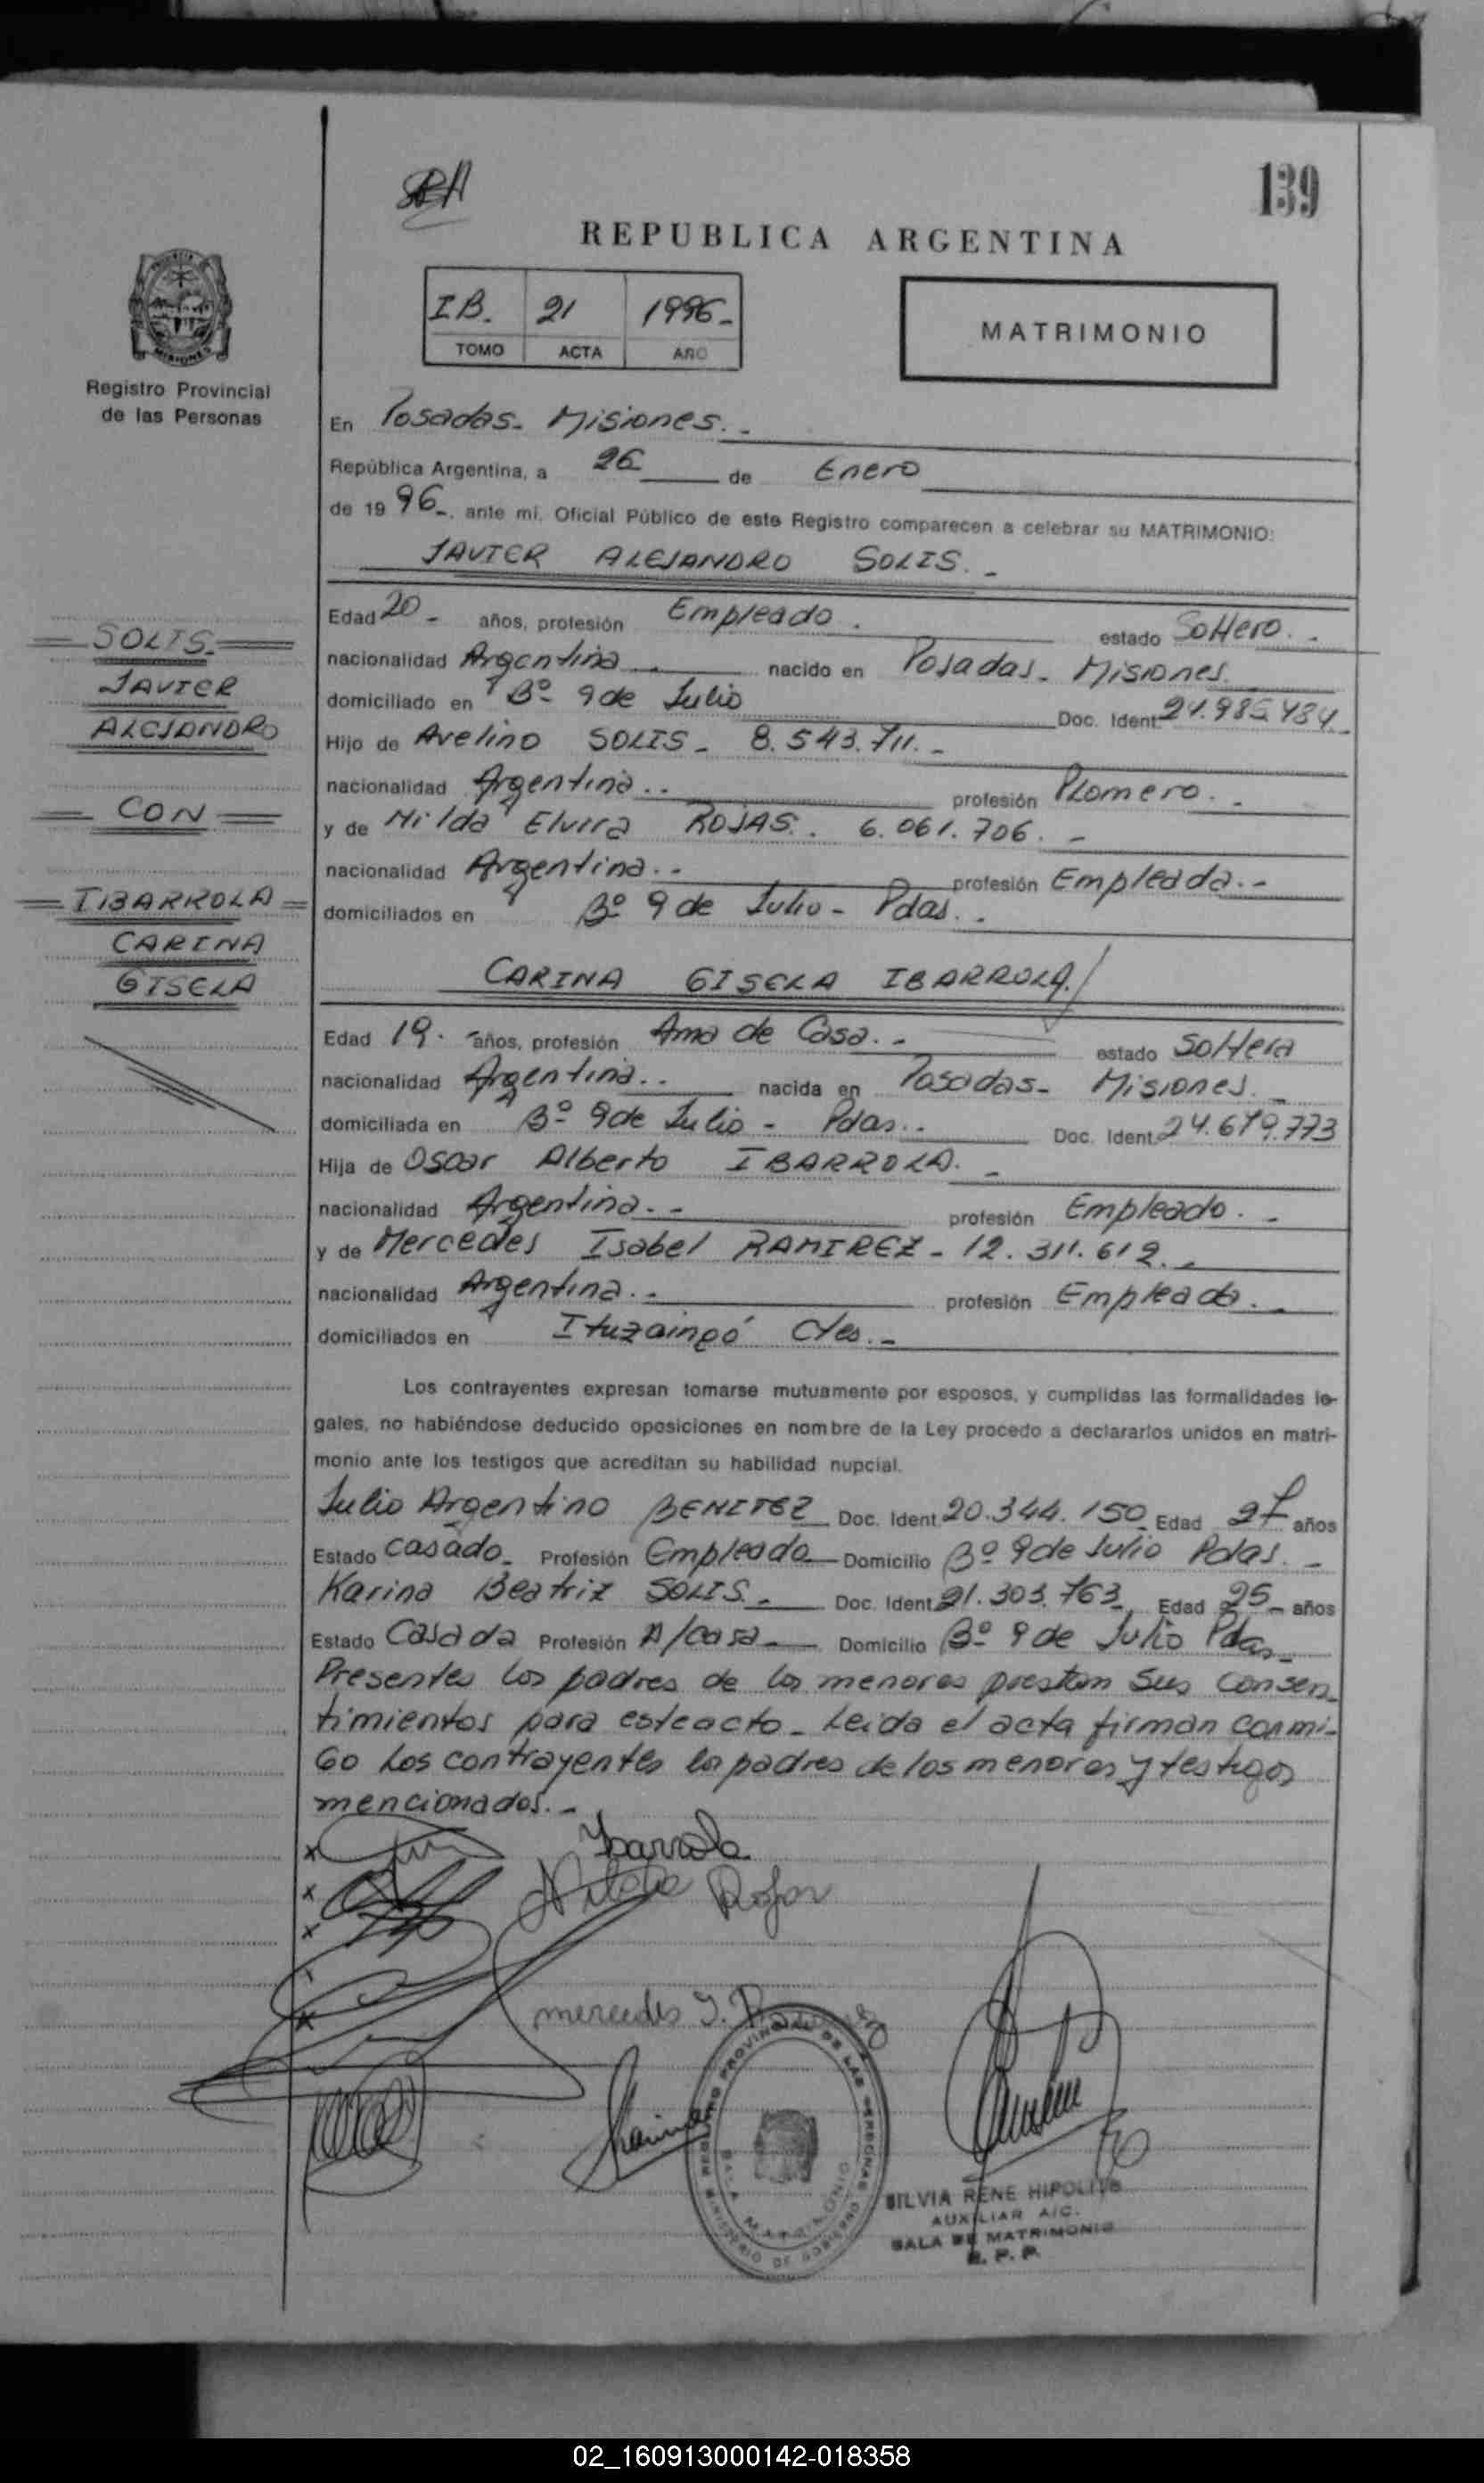 139
REPUBLICA ARGENTINA
I B. 21 1996-
TOMO ACTA AÑO
MATRIMONIO
Registro Provincial
de las Personas
En Posadas- Misiones.-
República Argentina, a 26 de Enero
de 19 96-, ante mi, Oficial Público de este Registro comparecen a celebrar su MATRIMONIO:
JAVIER ALEJANDRO SOLIS.-
Edad 20- años, profesión Empleado. estado Soltero.-
nacionalidad Argentina.- nacido en Posadas- Misiones.
domiciliado en Bº 9 de Julio Doc. Ident. 24.985.484.-
Hijo de Avelino SOLIS- 8.543.711.-
nacionalidad Argentina.. profesión Plomero.-
y de Nilda Elvira ROJAS. 6.061.706.-
nacionalidad Argentina.- profesión Empleada.-
domiciliados en Bº 9 de Julio- Pdas.-
SOLIS.
JAVIER
ALEJANDRO
CON
IBARROLA
CARINA
GISELA
CARINA GISELA IBARROLA.
Edad 19.- años, profesión Ama de Casa.- estado Soltera
nacionalidad Argentina.. nacida en Posadas- Misiones.-
domiciliada en Bº 9 de Julio- Pdas.. Doc. Ident. 24.679.773
Hija de Oscar Alberto IBARROLA.-
nacionalidad Argentina.- profesión Empleado.-
y de Mercedes Isabel RAMIREZ- 12.311.612.-
nacionalidad Argentina.- profesión Empleada.-
domiciliados en Ituzaingó Ctes.-
Los contrayentes expresan tomarse mutuamente por esposos, y cumplidas las formalidades le-
gales, no habiéndose deducido oposiciones en nombre de la Ley procedo a declararlos unidos en matri-
monio ante los testigos que acreditan su habilidad nupcial.
Julio Argentino BENITEZ Doc. Ident 20.344.150 Edad 27 años
Estado casado- Profesión Empleado Domicilio Bº 9 de Julio Pdas.-
Karina Beatriz SOLIS.- Doc. Ident 21.303.763 Edad 25- años
Estado Casada Profesión A/casa- Domicilio Bº 9 de Julio Pdas-
Presentes los padres de los menores prestan sus consen-
timientos para esteacto- Leida el acta firman conmi-
Go Los contrayentes los padres de los menores y testigos
mencionados.-
Ibarrola
Nilda Rojas
mercedes I.
REGISTRO PROVINCIAL DE LAS PERSONAS
SALA MATRIMONIO
MINISTERIO DE GOBIERNO
SILVIA RENE HIPOLITO
AUXILIAR A/C.
SALA DE MATRIMONIO
R. P. P.
02_160913000142-018358